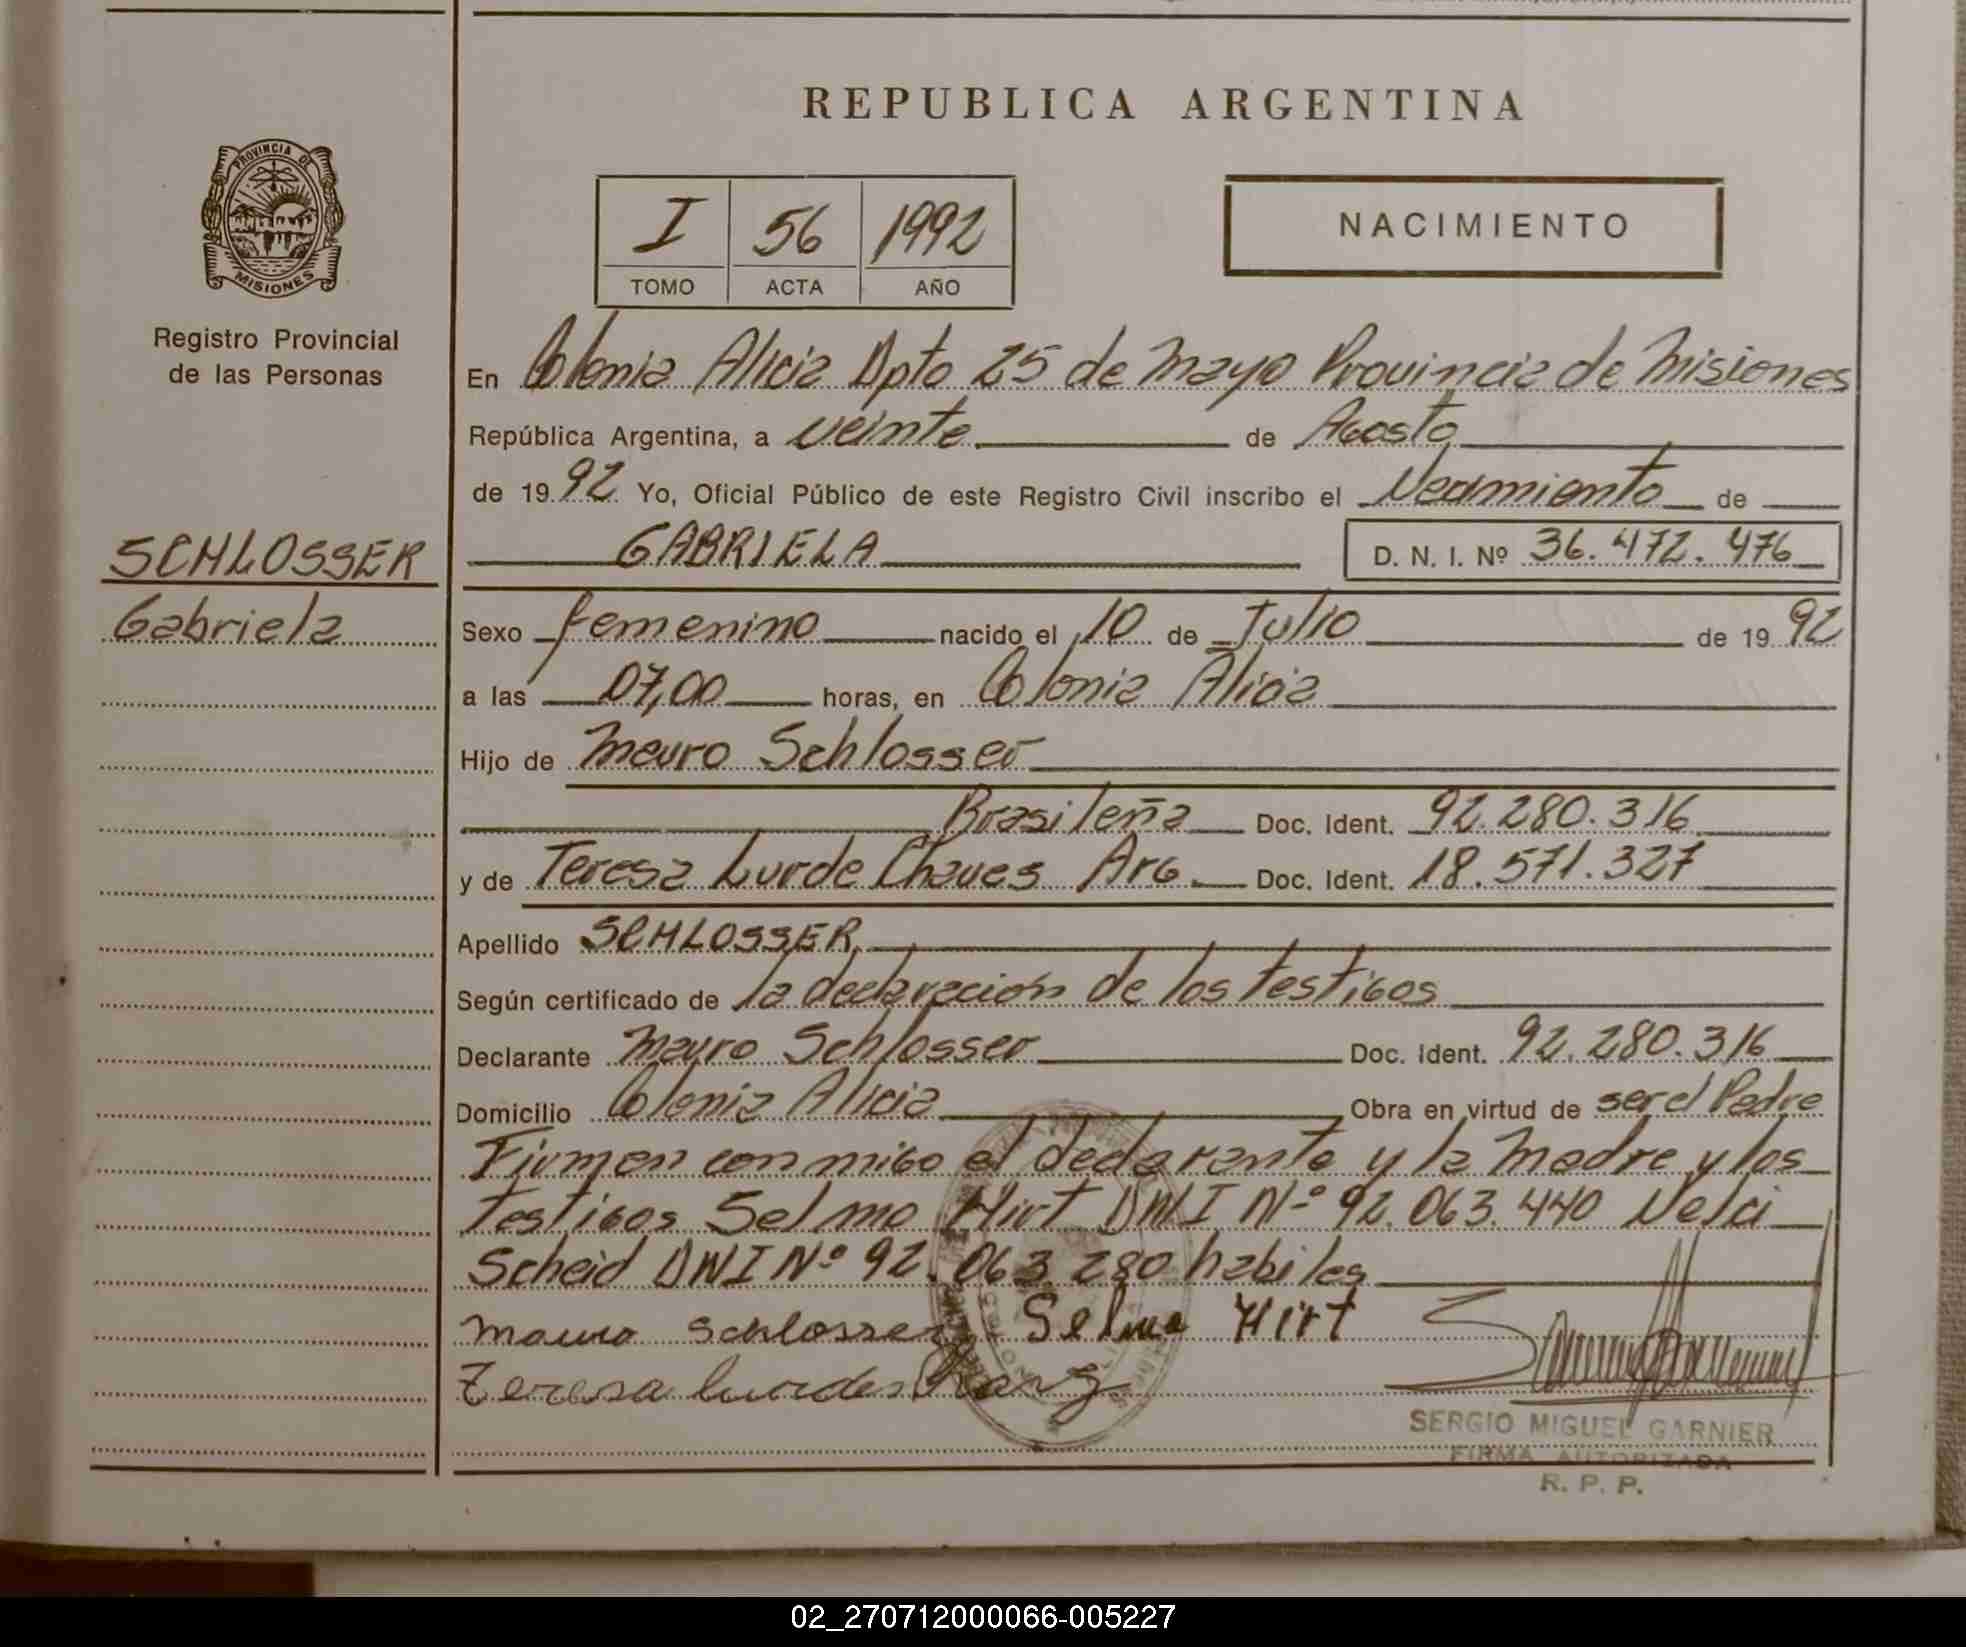 REPUBLICA ARGENTINA
PROVINCIA DE
MISIONES
Registro Provincial
de las Personas
I 56 1992
TOMO ACTA AÑO
NACIMIENTO
En Colonia Alicia Dpto 25 de Mayo Provincia de Misiones
República Argentina, a veinte de Agosto
de 1992 Yo, Oficial Público de este Registro Civil inscribo el Nacimiento de
SCHLOSSER
GABRIELA D. N. I. Nº 36.472.476
Gabriela
Sexo femenino nacido el 10 de Julio de 1992
a las 07,00 horas, en Colonia Alicia
Hijo de Mauro Schlosser
Brasileña Doc. Ident. 92.280.316
y de Teresa Lurde Chaves Arg. Doc. Ident. 18.571.327
Apellido SCHLOSSER
Según certificado de la declaración de los testigos
Declarante Mauro Schlosser Doc. Ident. 92.280.316
Domicilio Colonia Alicia Obra en virtud de ser el Padre
Firman conmigo el declarante y la Madre y los
testigos Selmo Hirt DNI Nº 92.063.440 Nelci
Scheid DNI Nº 92.063.280 habiles
Mauro Schlosser Selmo Hirt
Teresa Lurdes
SERGIO MIGUEL GARNIER
FIRMA AUTORIZADA
R. P. P.
02_270712000066-005227